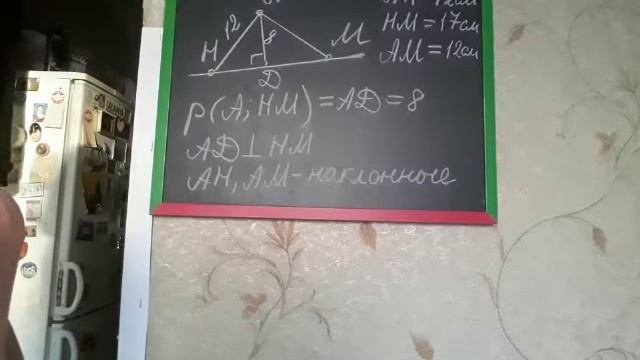 12
8
H
M
D
HM = 17см
AM = 12см
ρ(A; HM) = AD = 8
AD ⊥ HM
AH, AM - наклонные